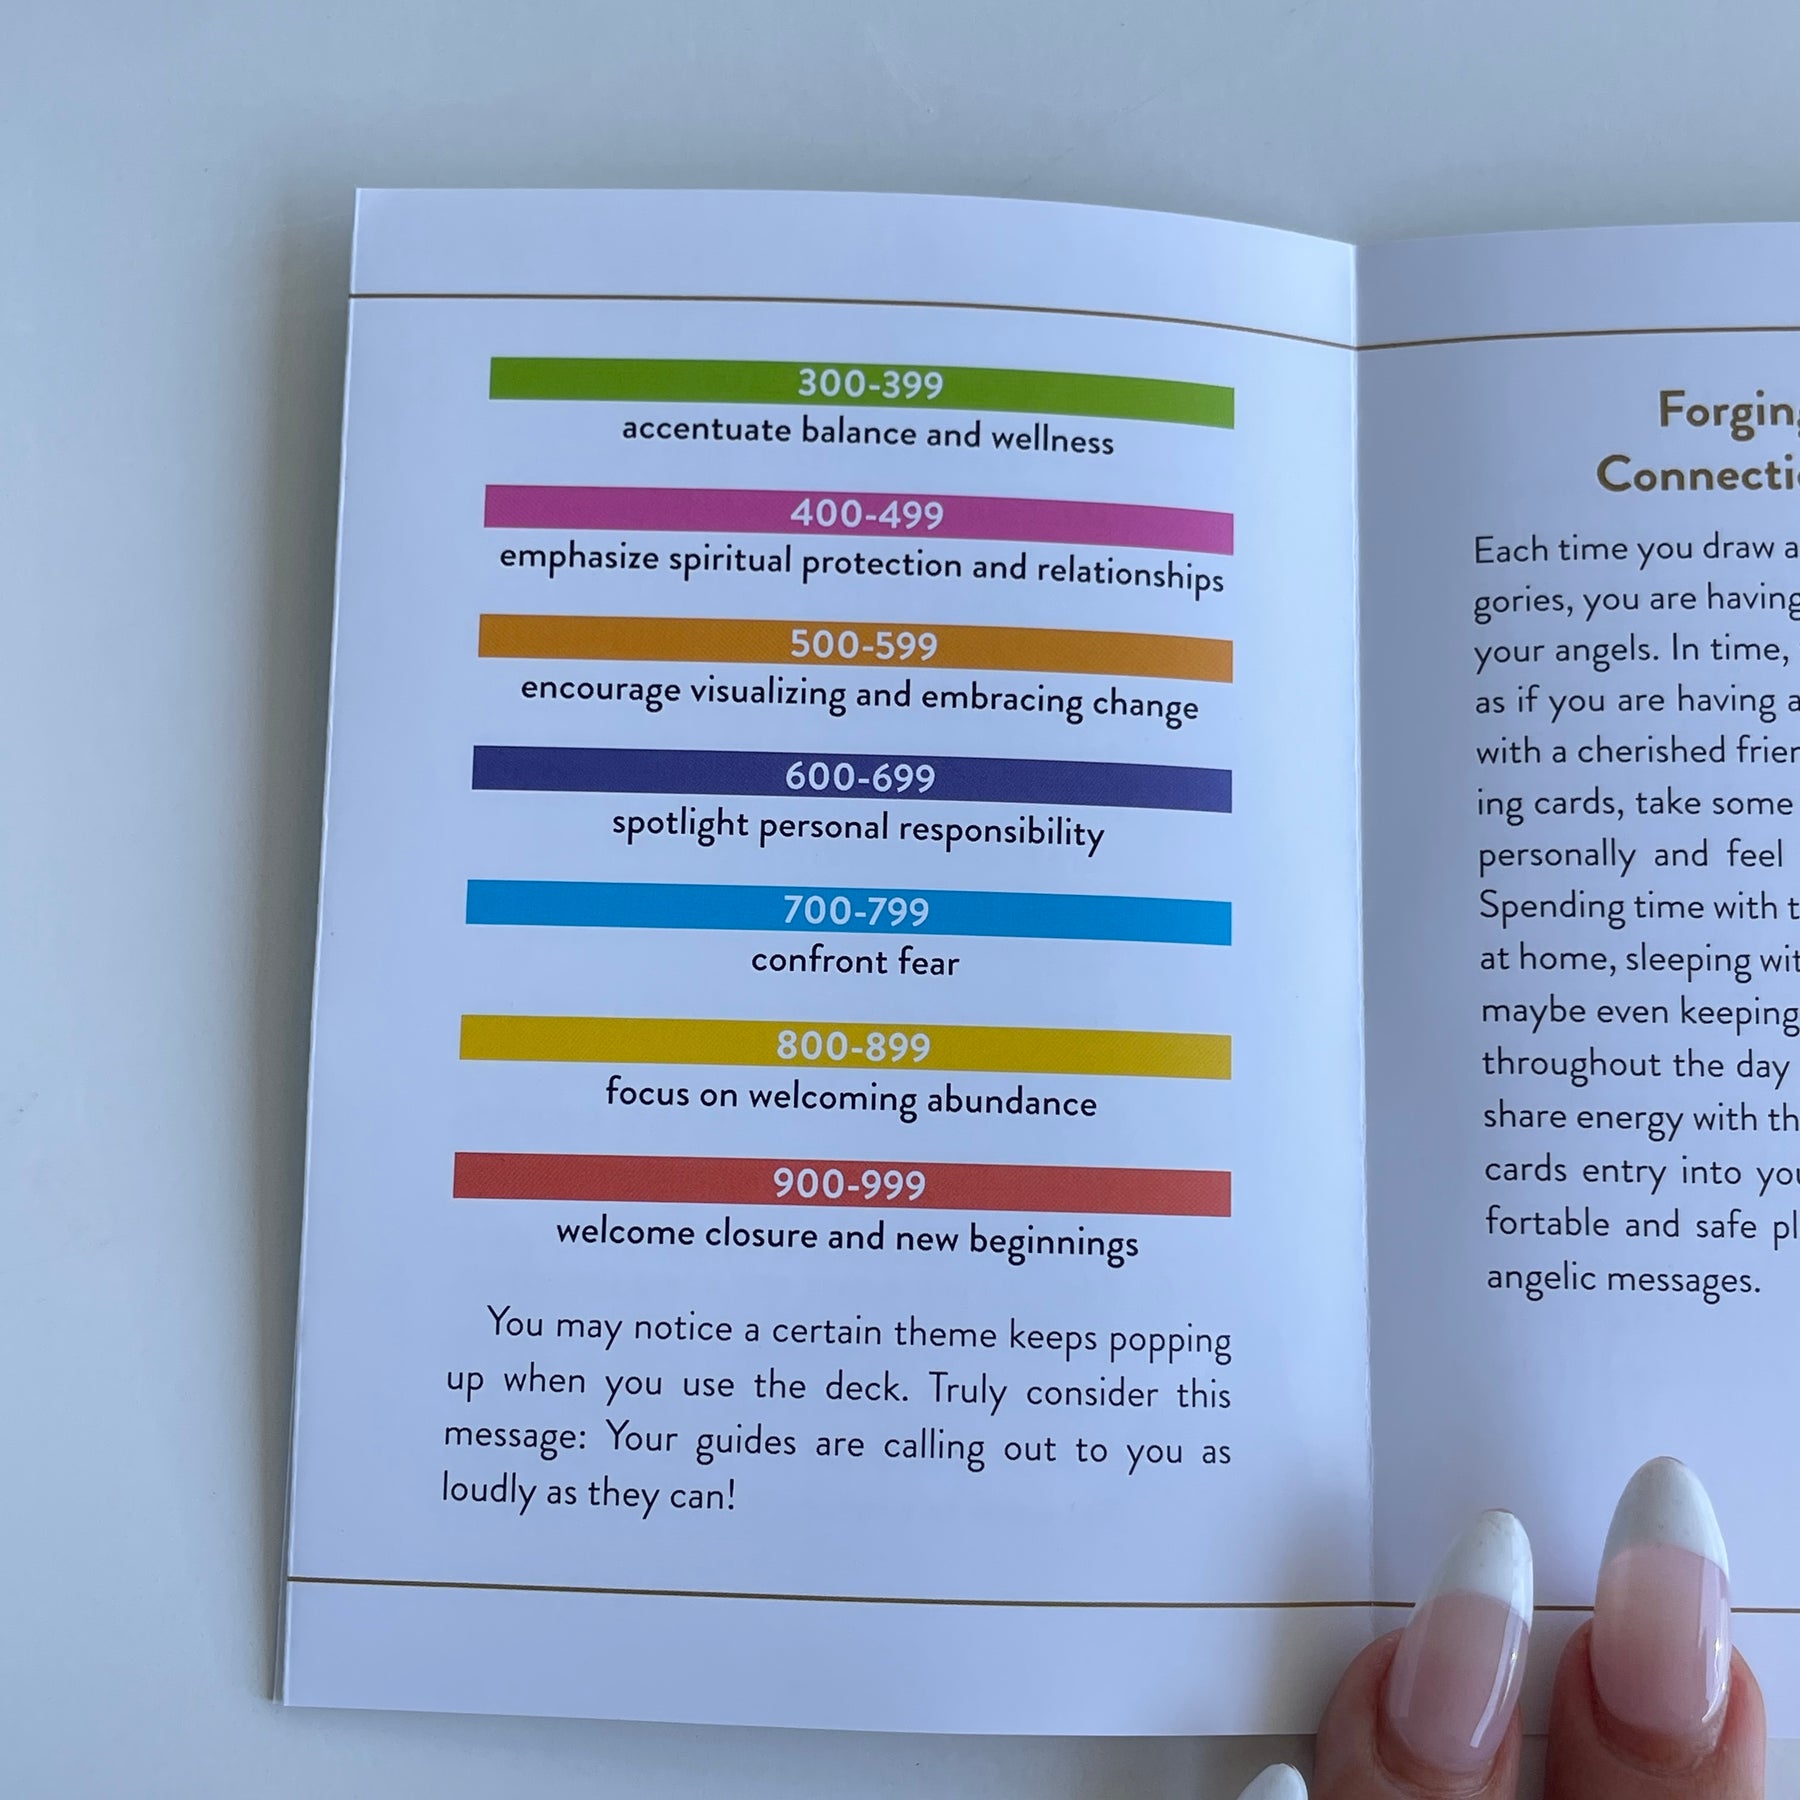 300-399
accentuate balance and wellness
400-499
emphasize spiritual protection and relationships
500-599
encourage visualizing and embracing change
600-699
spotlight personal responsibility
700-799
confront fear
800-899
focus on welcoming abundance
900-999
welcome closure and new beginnings
You may notice a certain theme keeps popping
up when you use the deck. Truly consider this
message: Your guides are calling out to you as
loudly as they can!
Each time you draw a
gories, you are having
your angels. In time,
as if you are having a
with a cherished
ing cards, take some
personally and feel
Spending time with
at home, sleeping
maybe even keeping
throughout the day
share energy with
cards entry into
fortable and safe
angelic messages.